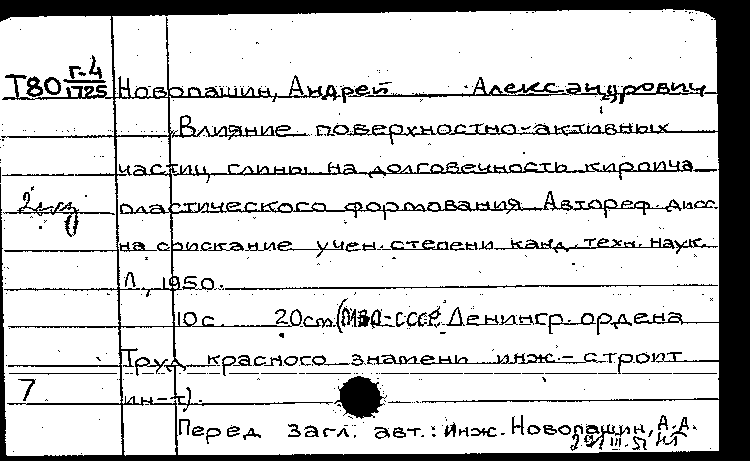 Т80 Г-4/1725 Новопашин, Андрей Александрович
Влияние поверхностно-активных
частиц глины на долговечность кирпича
2 экз пластического формования Автореф. дисс
на соискание учен. степени канд. техн. наук.
Л., 1950.
10 с. 20 см (М-во СССР. Ленингр. ордена
Труд. красного знамени инж.-строит.
7 ин-т).
Перед загл. авт.: Инж. Новопашин, А.А.